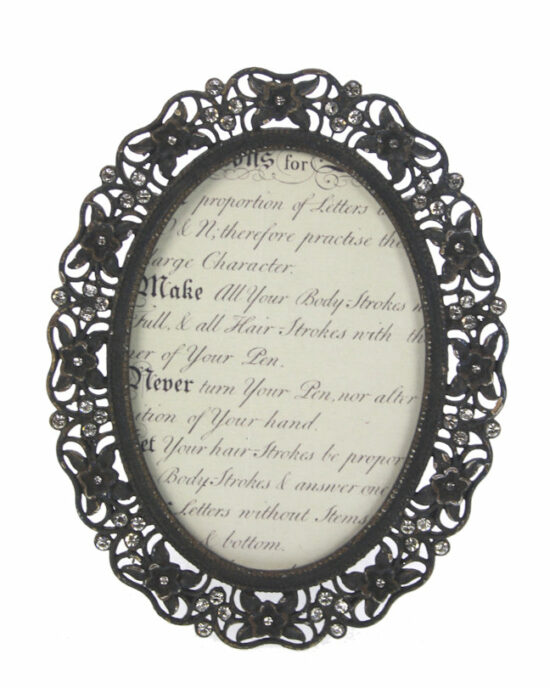 for
proportion of Letters
& N; therefore practise the
arge Character.
Make All Your Body Strokes
Full, & all Hair Strokes with th
er of Your Pen.
Never turn Your Pen, nor alter
ition of Your hand.
et Your hair Strokes be propor
Body Strokes & answer one
Letters without Stems
& bottom.